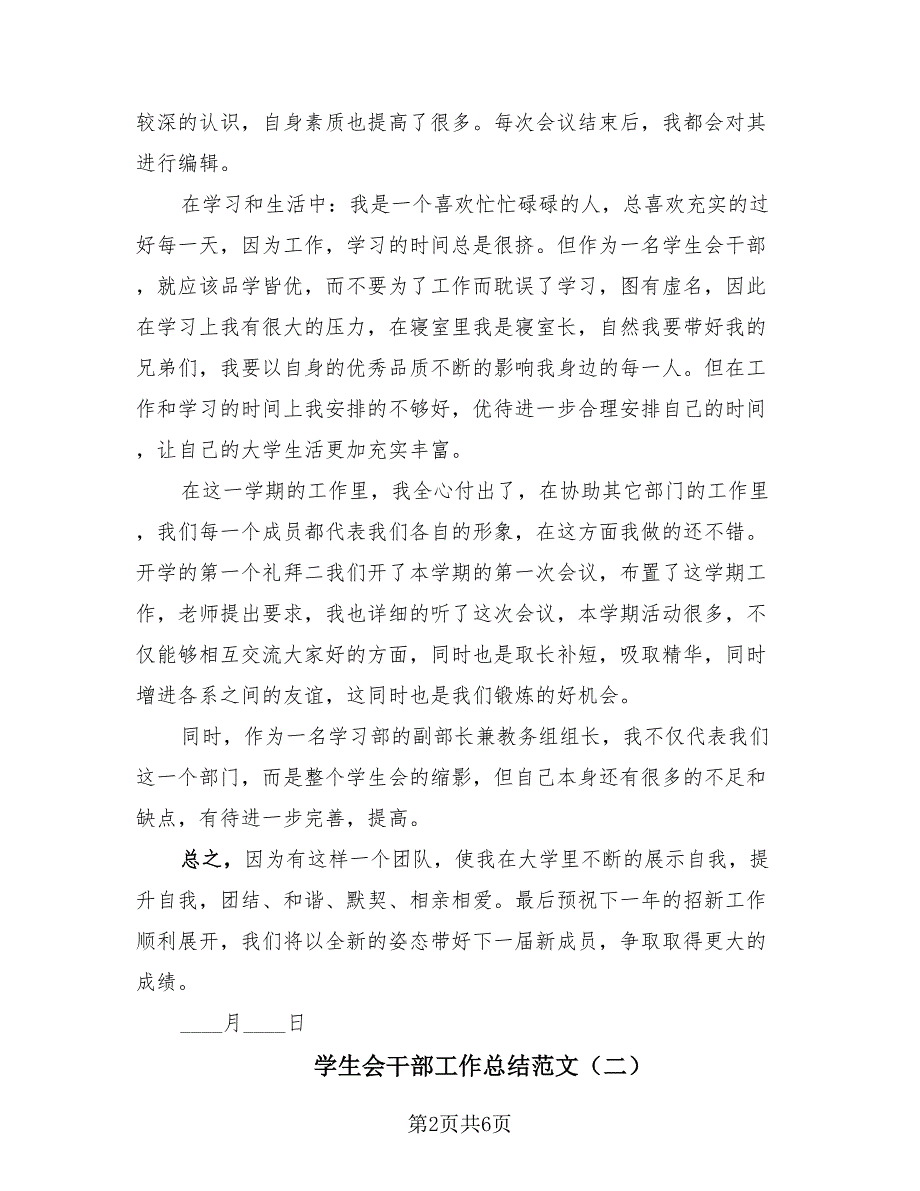 较深的认识，自身素质也提高了很多。每次会议结束后，我都会对其
进行编辑。
在学习和生活中：我是一个喜欢忙忙碌碌的人，总喜欢充实的过
好每一天，因为工作，学习的时间总是很挤。但作为一名学生会干部
，就应该品学皆优，而不要为了工作而耽误了学习，图有虚名，因此
在学习上我有很大的压力，在寝室里我是寝室长，自然我要带好我的
兄弟们，我要以自身的优秀品质不断的影响我身边的每一人。但在工
作和学习的时间上我安排的不够好，优待进一步合理安排自己的时间
，让自己的大学生活更加充实丰富。
在这一学期的工作里，我全心付出了，在协助其它部门的工作里
，我们每一个成员都代表我们各自的形象，在这方面我做的还不错。
开学的第一个礼拜二我们开了本学期的第一次会议，布置了这学期工
作，老师提出要求，我也详细的听了这次会议，本学期活动很多，不
仅能够相互交流大家好的方面，同时也是取长补短，吸取精华，同时
增进各系之间的友谊，这同时也是我们锻炼的好机会。
同时，作为一名学习部的副部长兼教务组组长，我不仅代表我们
这一个部门，而是整个学生会的缩影，但自己本身还有很多的不足和
缺点，有待进一步完善，提高。
总之，因为有这样一个团队，使我在大学里不断的展示自我，提
升自我，团结、和谐、默契、相亲相爱。最后预祝下一年的招新工作
顺利展开，我们将以全新的姿态带好下一届新成员，争取取得更大的
成绩。
____月____日
学生会干部工作总结范文（二）
第2页共6页